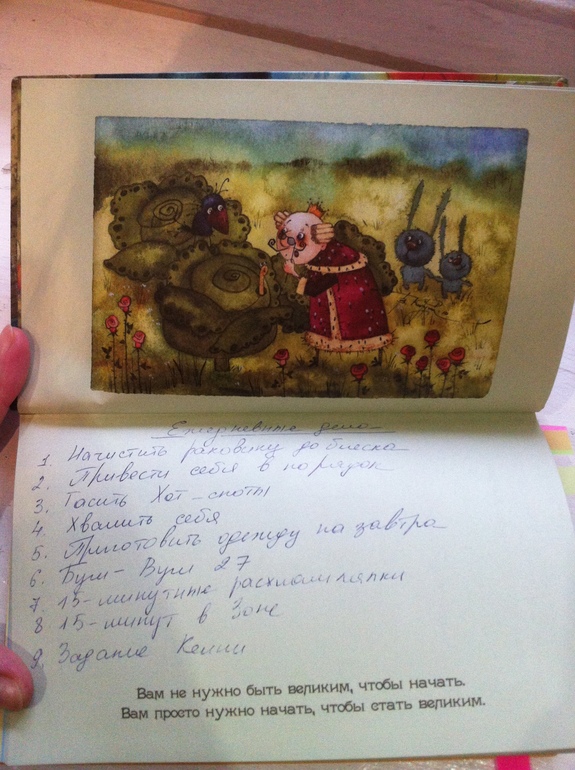 Ежедневные дела
1. Начистить раковину до блеска
2. Привести себя в порядок
3. Гасить Хот-споты
4. Хвалить себя
5. Приготовить одежду на завтра
6. Буги-Вуги 27
7. 15-минутное расхламление
8 15-минут в Зоне
9. Задание Келли
Вам не нужно быть великим, чтобы начать.
Вам просто нужно начать, чтобы стать великим.